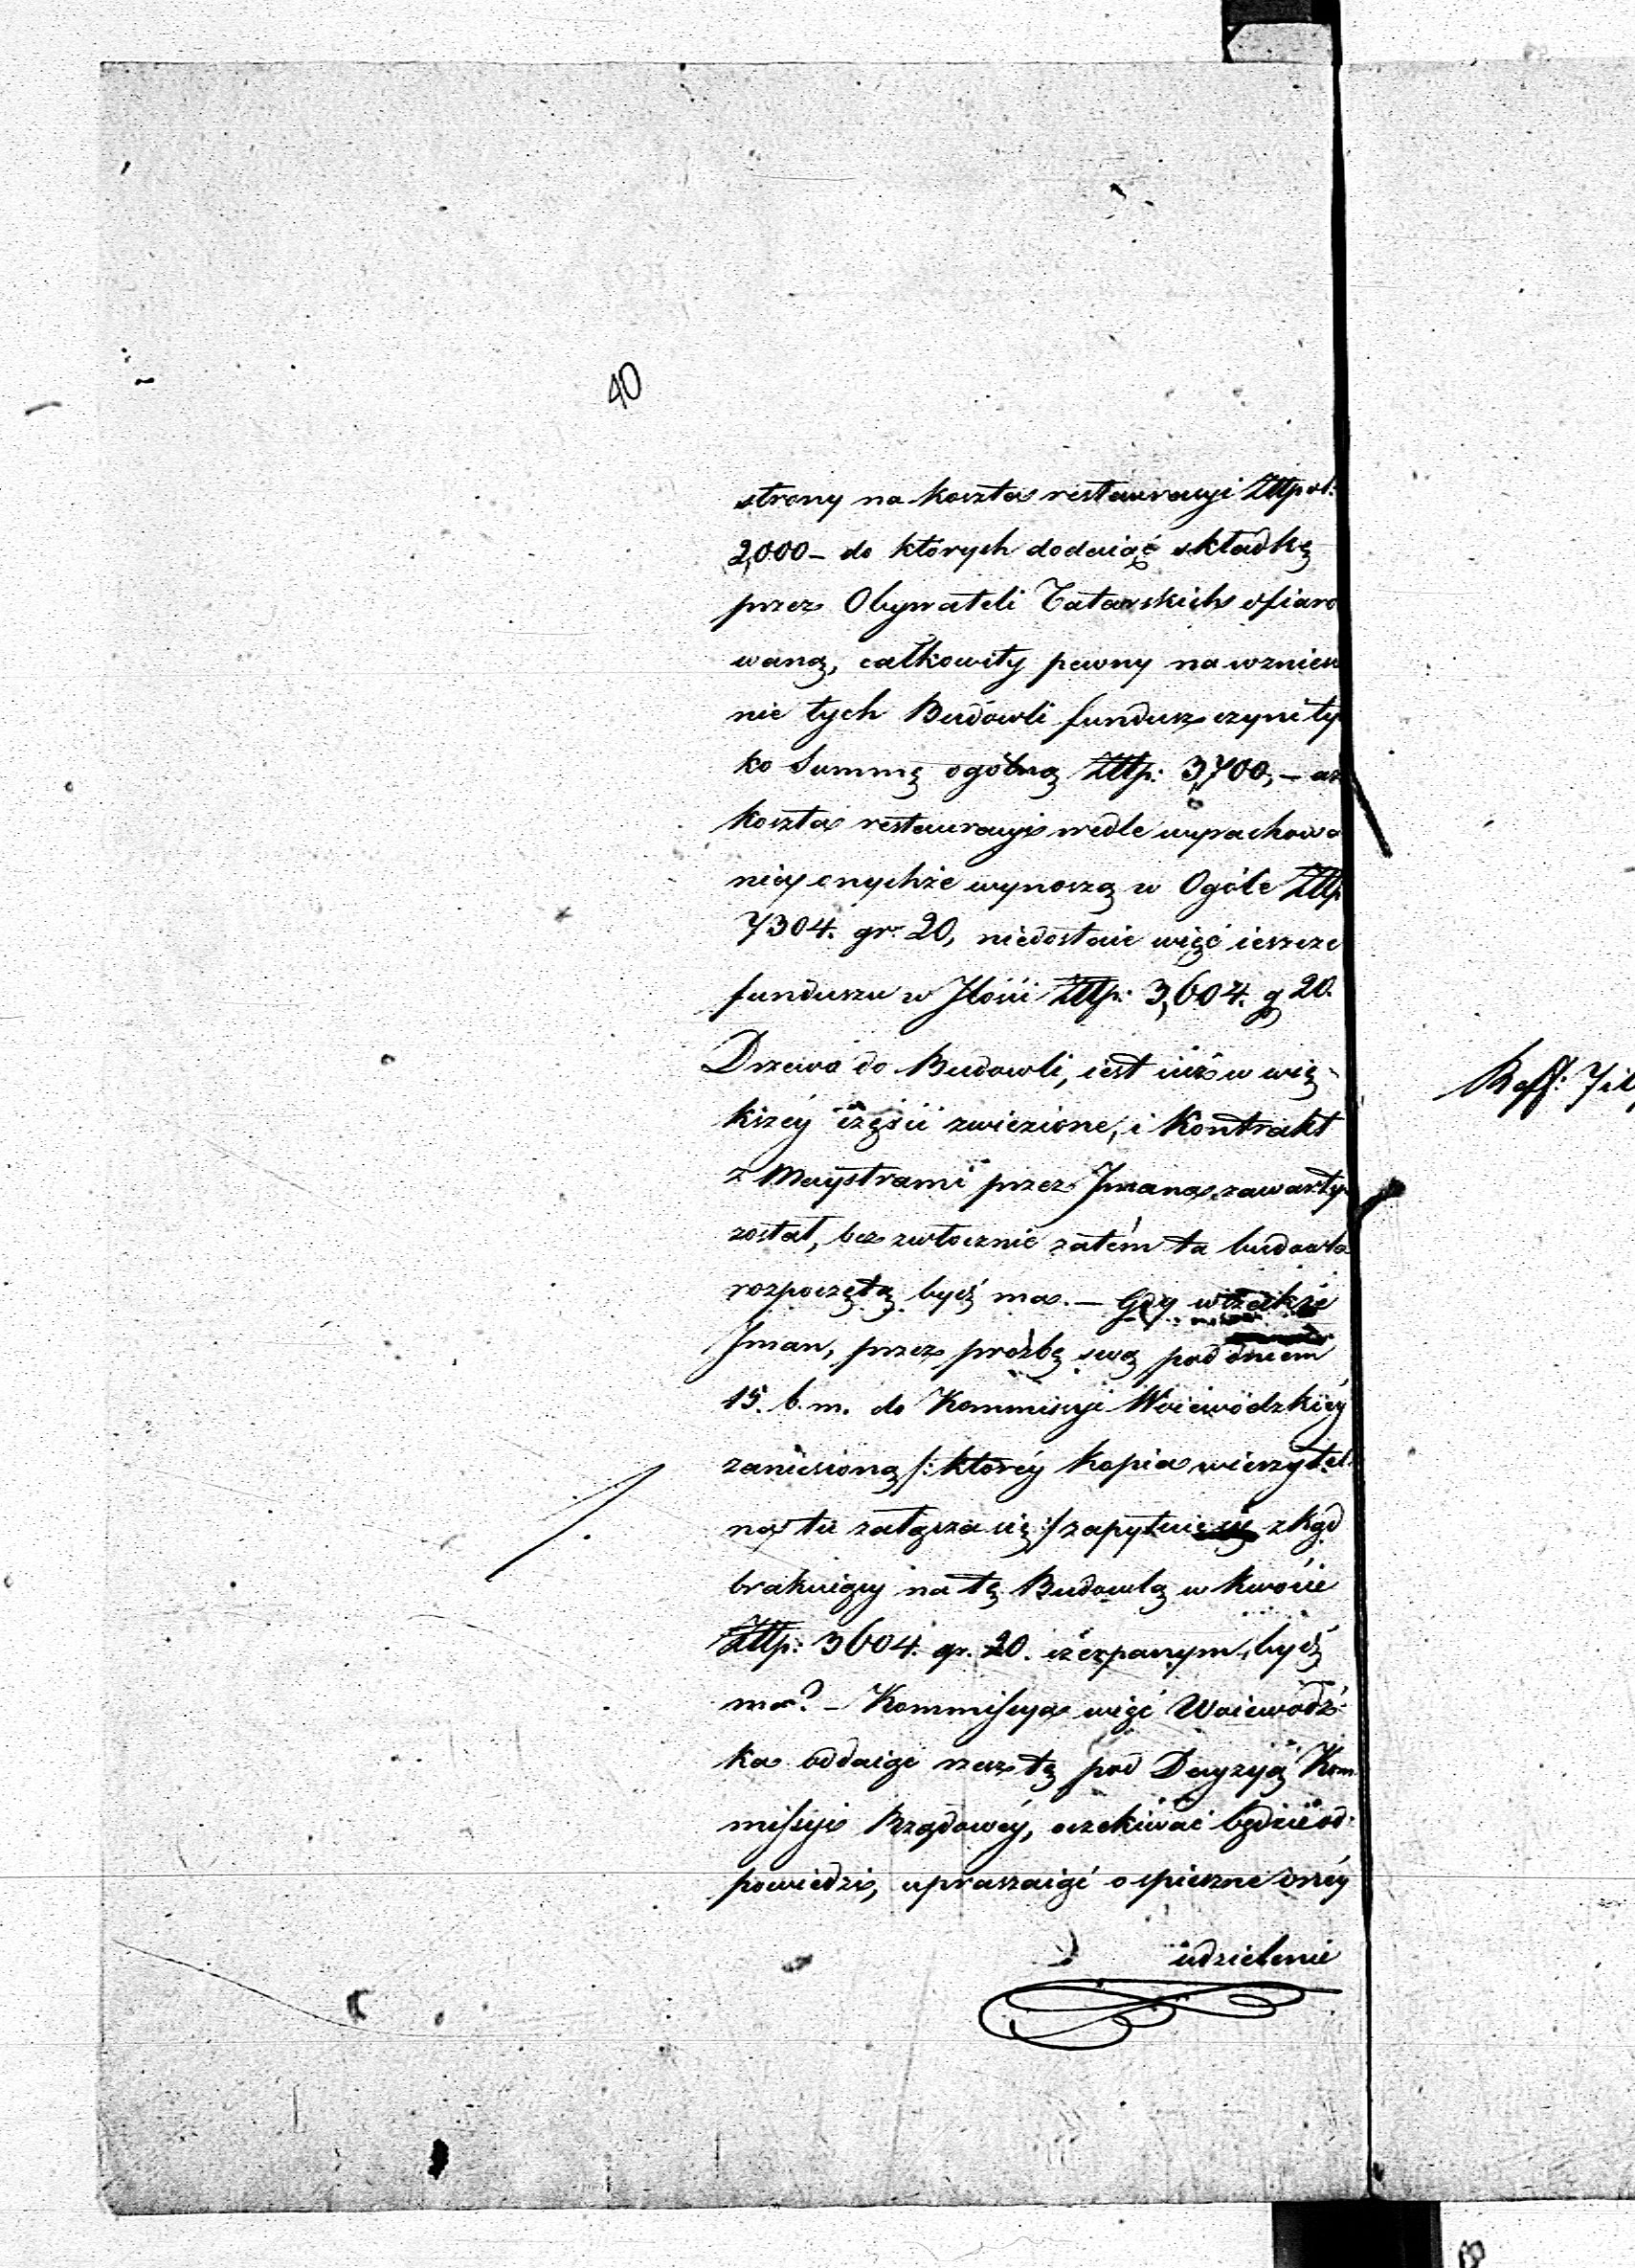 40
strony na koszta restauracyi Złłpol:
2,000 – do których dodaiąć składkę
przez Obywateli Tatarskich ofiaro
waną, całkowity pewny na wznies
nie tych Budowli fundusz czyni tyl
ko Summę ogólną Złłp: 3,700, – a
koszta restauracyi wedle wyrachowa
nia onychże wynoszą w Ogóle Złłp
7304. gr. 20, niedostaie więć ieszcze
funduszu w Jlości Złłp: 3,604. g 20.
Drzewo do Budowli, iest iuż w wię-
kszéy części zwiezione, i Kontrakt
z Maystrami przez Jmana zawarty
został, bezzwłocznie zatém ta budowla
rozpoczętą bydź ma. – Gdy wszakże
Jman, przez prożbę swą pod dniem
15. b. m. do Kommissyi Woiewódzkiéy
zaniesioną /: któréy kopia wierzytel
na tu załącza się :/ zapytuie zkąd
brakuiący na tę Budowlą w kwocie
Złłp: 3604. gr. 20. czerpanym bydź
ma? – Kommissya więć Woiewódz-
ka oddaiąc rzecz tę pod Decyzyą Kom
missyi Rządowéy, oczekiwać będzie od-
powiedzi, upraszaiąć o spieszne onéy
udzielenie